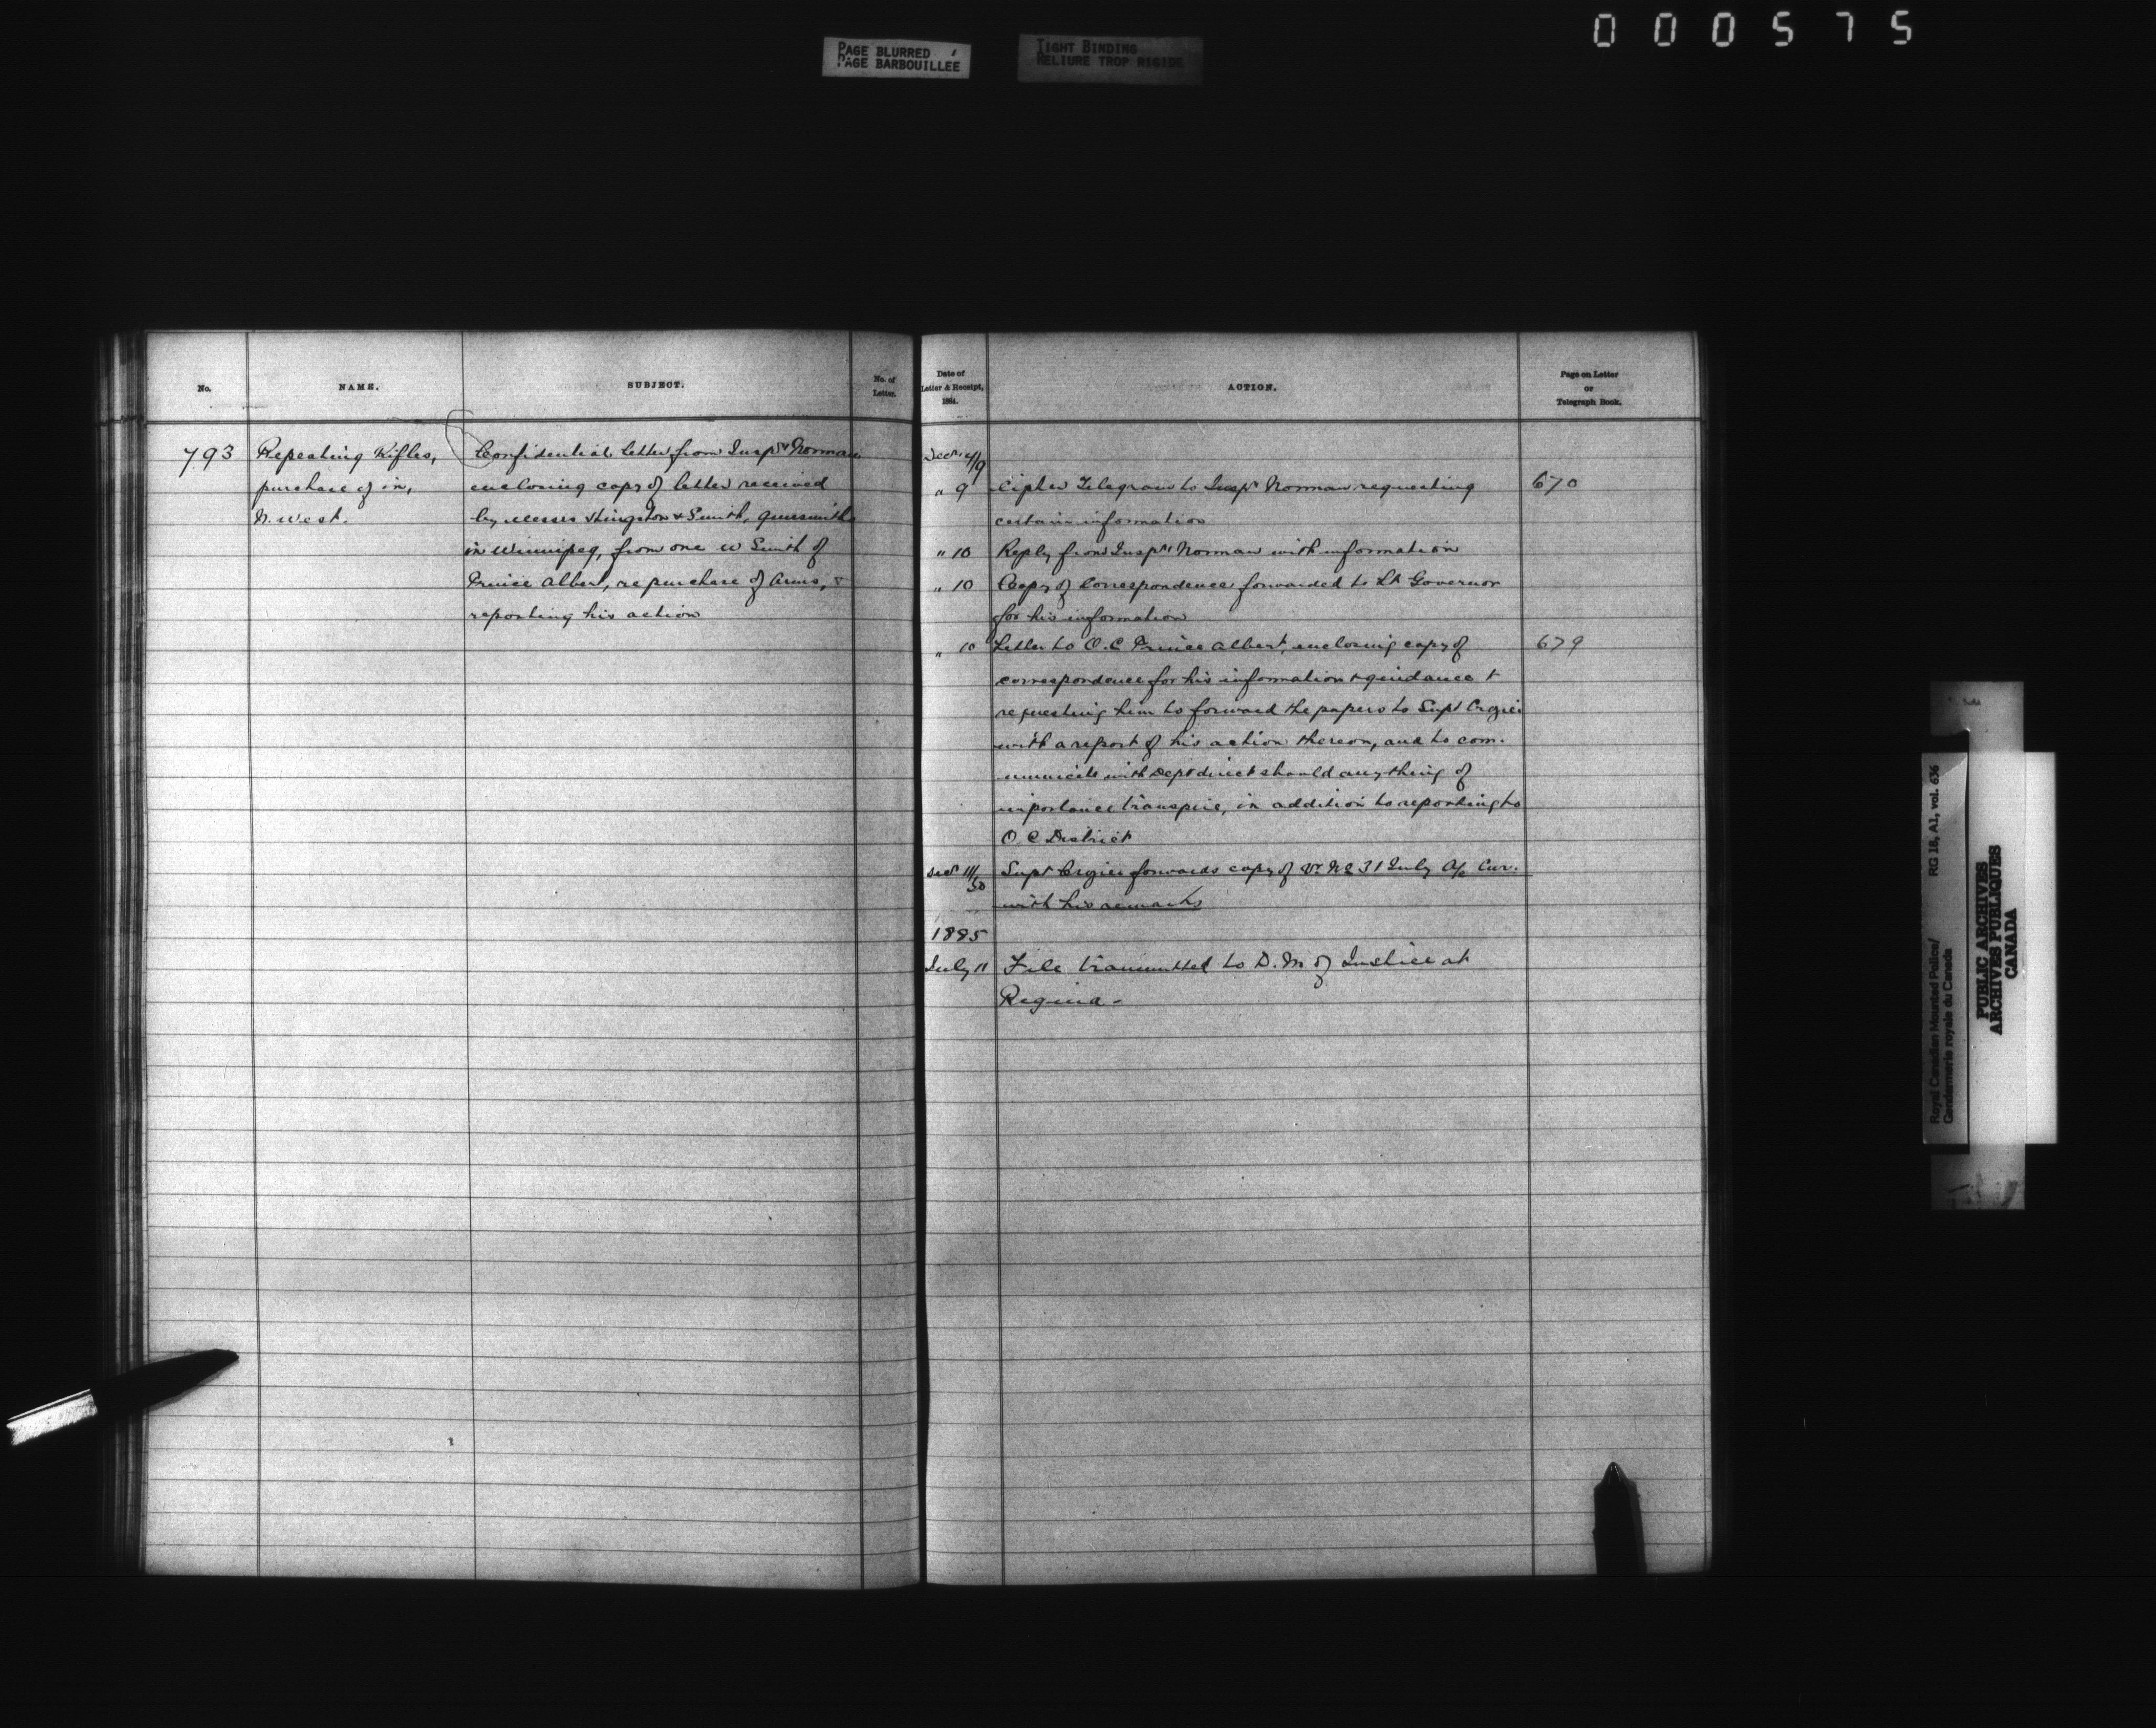 000575
PAGE BLURRED
PAGE BARBOUILLEE
TIGHT BINDING
RELIURE TROP RIGIDE
No.
NAME.
SUBJECT.
No. of
Letter.
793
Repeating Rifles,
purchase of in,
N. West.
Confidential letter from Inspr Norman
enclosing copy of letter received
by Messrs Hingston & Smith, gunsmiths
in Winnipeg, from one W Smith of
Prince Albert, re purchase of Arms, &
reporting his action
Date of
Letter & Receipt,
1884.
ACTION.
Page on Letter
or
Telegraph Book.
Decr 4/9
" 9 Cipher Telegram to Inspr Norman requesting 670
certain information
" 10 Reply from Inspr Norman with information
" 10 Copy of Correspondence forwarded to Lt Governor
for his information
" 10 Letter to O.C Prince Albert, enclosing copy of 679
correspondence for his information & guidance &
requesting him to forward the papers to Supt Crozier
with a report of his action thereon, and to com-
municate with Dept direct should anything of
importance transpire, in addition to reporting to
O C District
Decr 11/30 Supt Crozier forwards copy of 31 July
with his remarks
1885
July 11 File transmitted to D. M of Justice at
Regina -
Royal Canadian Mounted Police/
Gendarmerie royale du Canada
RG 18, A1, vol. 636
PUBLIC ARCHIVES
ARCHIVES PUBLIQUES
CANADA